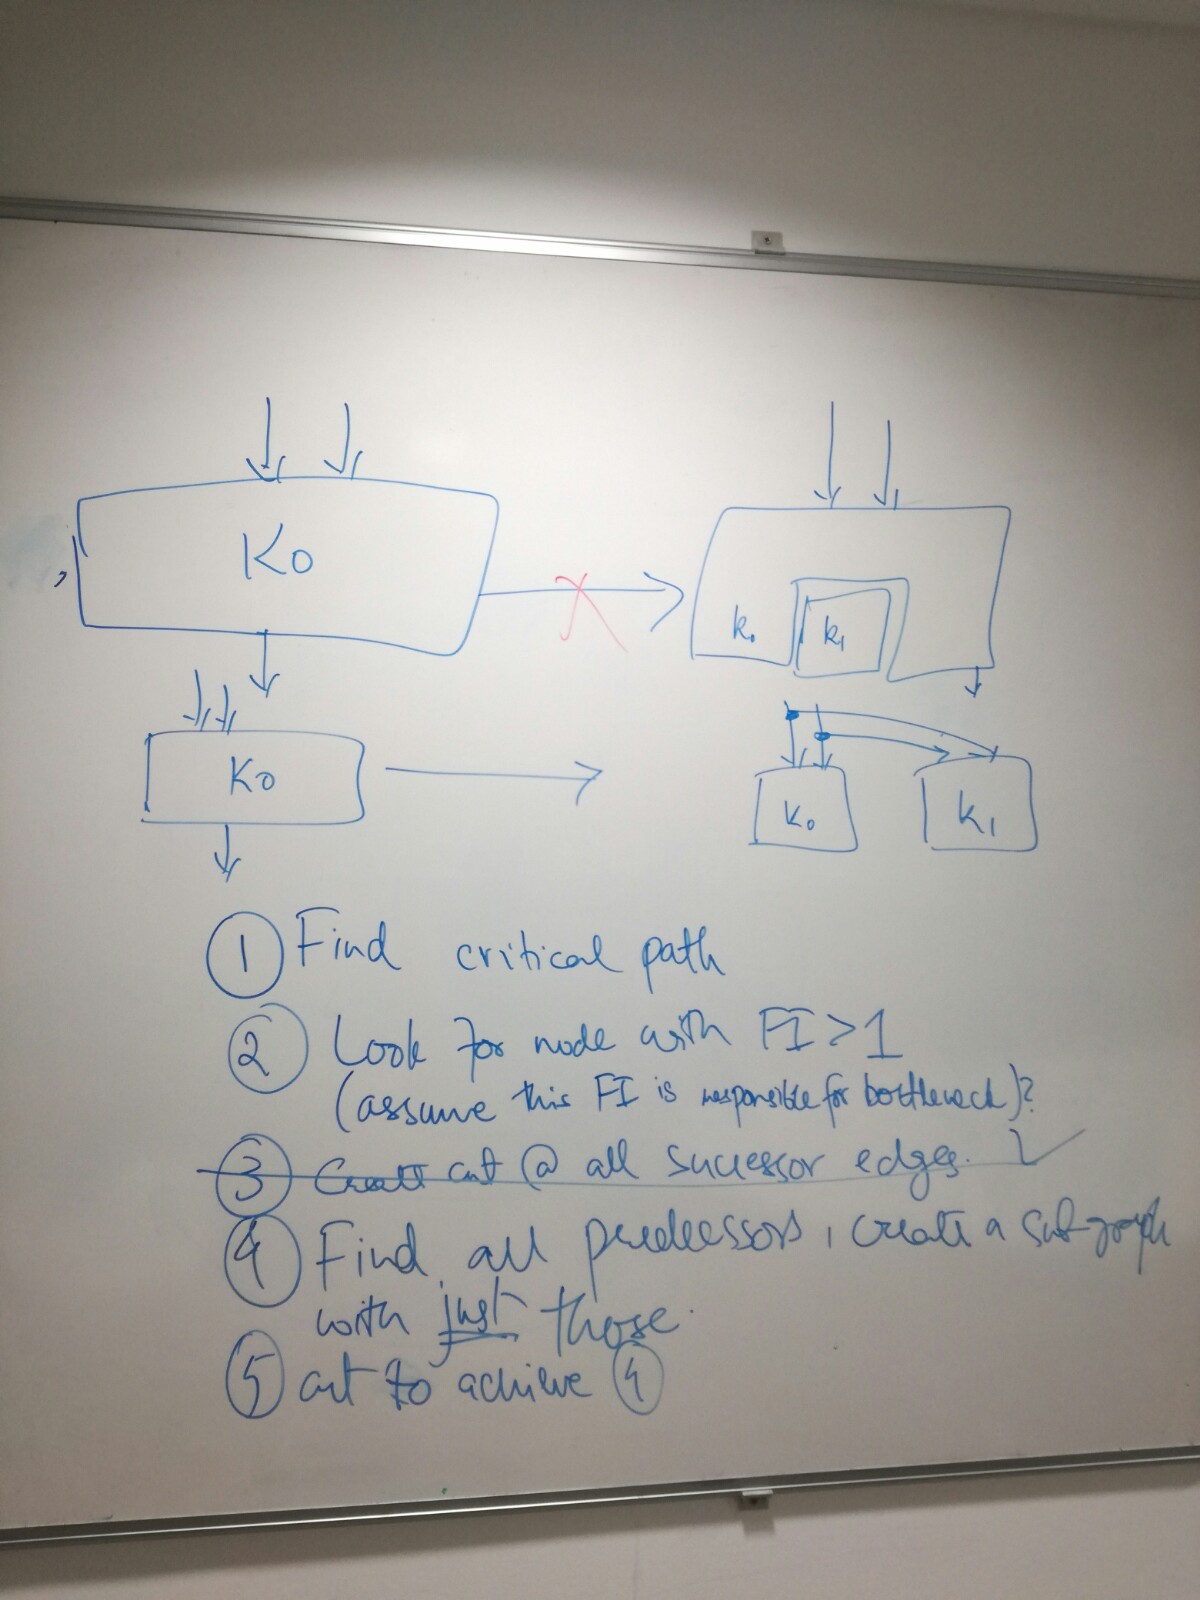 K0
k0 k1
K0
k0 k1
1 Find critical path
2 Look for node with FI>1
(assume this FI is responsible for bottleneck)?
3 Create cut @ all successor edges.
4 Find all predecessors, create a subgraph
with just those.
5 cut to achieve 4